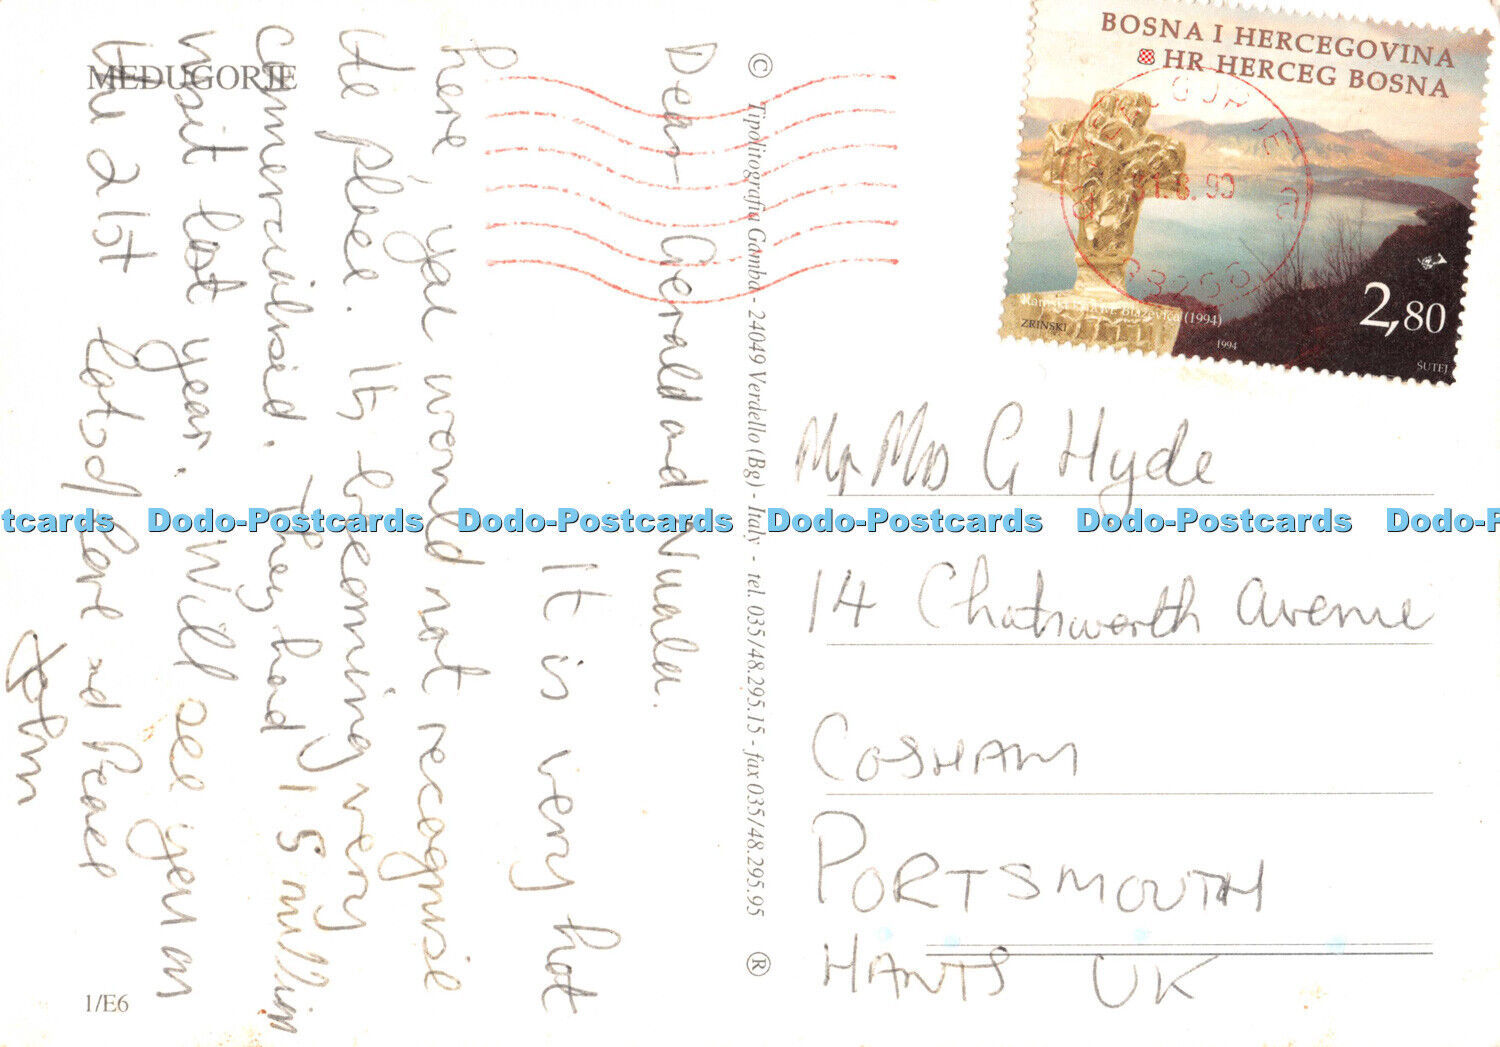 MEĐUGORJE
Dear Gerald and Nuala.
It is very hot
here, you would not recognise
the place. Its becoming very
commercialised. They had 15 million
visit last year. Will see you on
the 21st lots of love and Peace
John
1/E6
© Tipolitografia Gamba - 24049 Verdello (Bg) - Italy - tel. 035/48.295.15 - fax 035/48.295.95 ®
BOSNA I HERCEGOVINA
HR HERCEG BOSNA
(1994)
ZRINSKI
1994
2,80
ŠUTEJ
Mr Mrs G Hyde
14 Chatsworth Avenue
COSHAM
PORTSMOUTH
HANTS UK
tcards Dodo-Postcards Dodo-Postcards Dodo-Postcards Dodo-Postcards Dodo-P